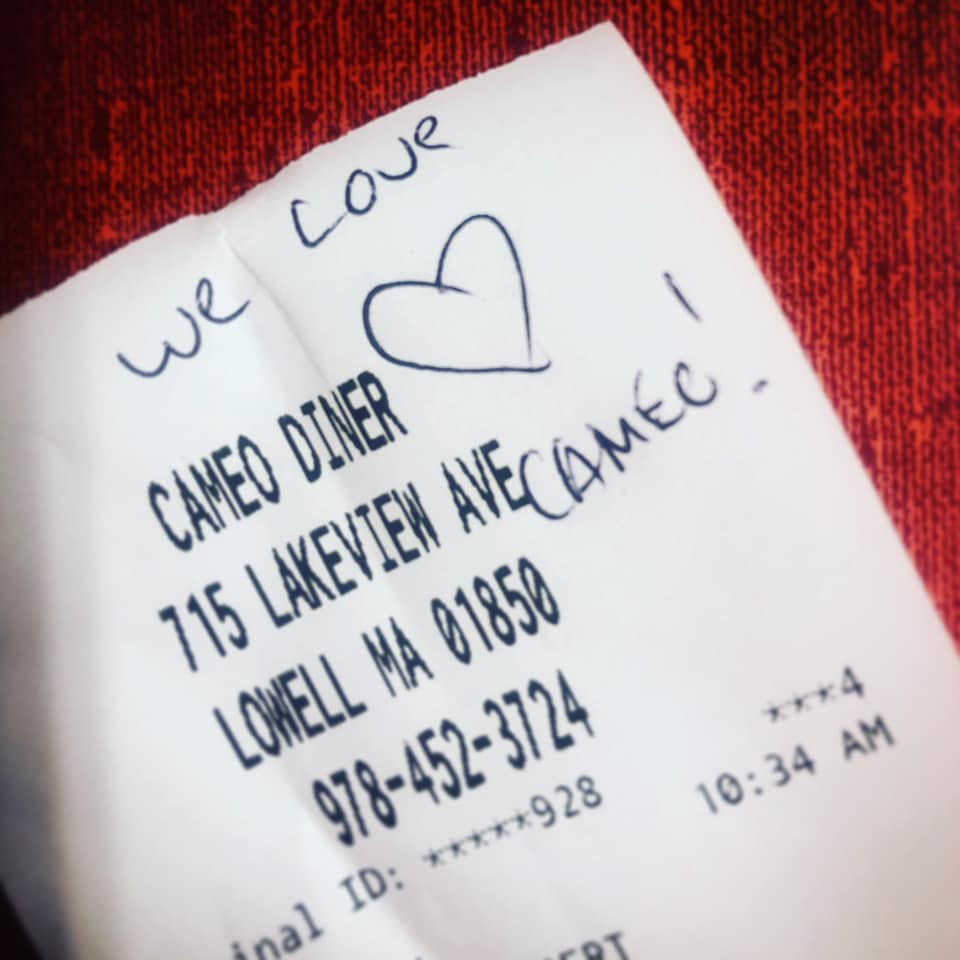 We Love
CAMEO!
CAMEO DINER
715 LAKEVIEW AVE
LOWELL MA 01850
978-452-3724
***4
inal ID: *****928
10:34 AM
ERT